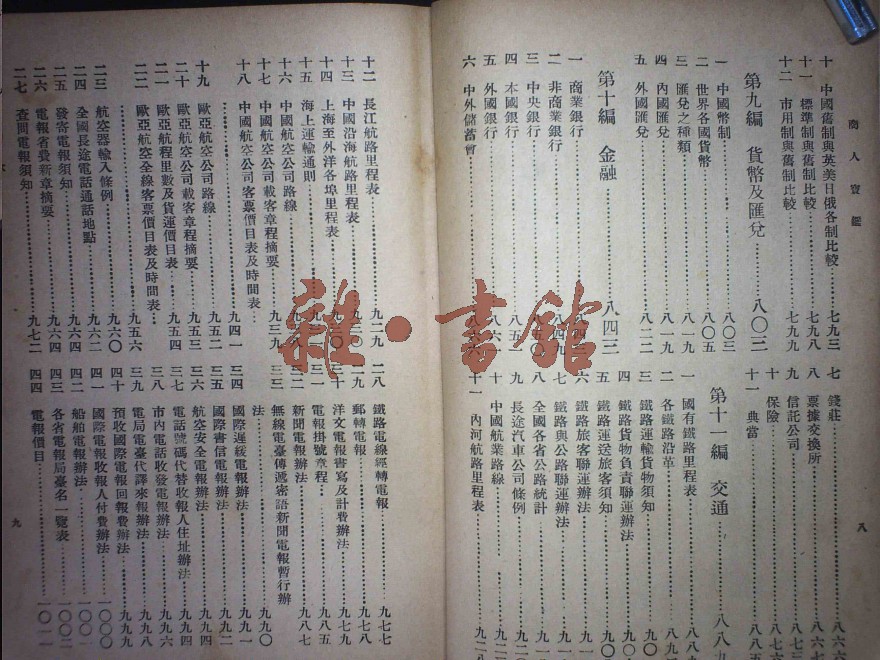 商人寶鑑
十 中國舊制與英美日俄各制比較……七九三
十一 標準制與舊制比較……七九八
十二 市用制與舊制比較……七九九
第九編 貨幣及匯兌……八〇三
一 中國幣制……八〇三
二 世界各國貨幣……八〇五
三 匯兌之種類……八一九
四 內國匯兌……八二二
五 外國匯兌……
第十編 金融……八四三
一 商業銀行……
二 非商業銀行……八四九
三 中央銀行……八五〇
四 本國銀行……八五一
五 外國銀行……
六 中外儲蓄會……
七 錢莊……八六六
八 票據交換所……八六七
九 信託公司……八七三
十 保險……八七六
十一 典當……八八五
第十一編 交通……八八九
一 國有鐵路里程表……
二 各鐵路沿革……
三 鐵路運輸貨物須知……
四 鐵路貨物負責聯運辦法……
五 鐵路運送旅客須知……
六 鐵路旅客聯運辦法……
七 鐵路與公路聯運辦法……
八 全國各省公路統計……
九 長途汽車公司條例……
十 中國航業路線……
十一 內河航路里程表……
八
十二 長江航路里程表……九二九
十三 中國沿海航路里程表……
十四 上海至外洋各埠里程表……
十五 海上運輸通則……
十六 中國航空公司路線……
十七 中國航空公司載客章程摘要……九三九
十八 中國航空公司客票價目表及時間表……
……九四一
十九 歐亞航空公司路線……九五二
二十 歐亞航空公司載客章程摘要……九五三
二一 歐亞航程里數及貨運價目表……九五四
二二 歐亞航空全線客票價目表及時間表……
……九五六
二三 航空器輸入條例……九六〇
二四 全國長途電話通話地點……九六二
二五 發寄電報須知……九六四
二六 電報省費新章摘要……九六四
二七 查問電報須知……九七二
二八 鐵路電線經轉電報……九七七
二九 郵轉電報……九七八
三十 洋文電報書寫及計費辦法……九七九
三一 電報掛號章程……九八五
三二 新聞電報辦法……九八七
三三 無線電臺傳遞密語新聞電報暫行辦
法……九九〇
三四 國際遲緩電報辦法……九九一
三五 國際書信電報辦法……九九二
三六 航空安全電報辦法……九九四
三七 電話號碼代替收報人住址辦法……九九四
三八 市內電話收發電報辦法……九九六
三九 電局電臺代譯來報辦法……九九八
四十 預收國際電報回報費辦法……九九九
四一 國際電報收報人付費辦法……一〇〇〇
四二 船舶電報辦法……一〇〇一
四三 各省電報局臺名一覽表……一〇〇二
四四 電報價目……一〇一一
九
雜·書館